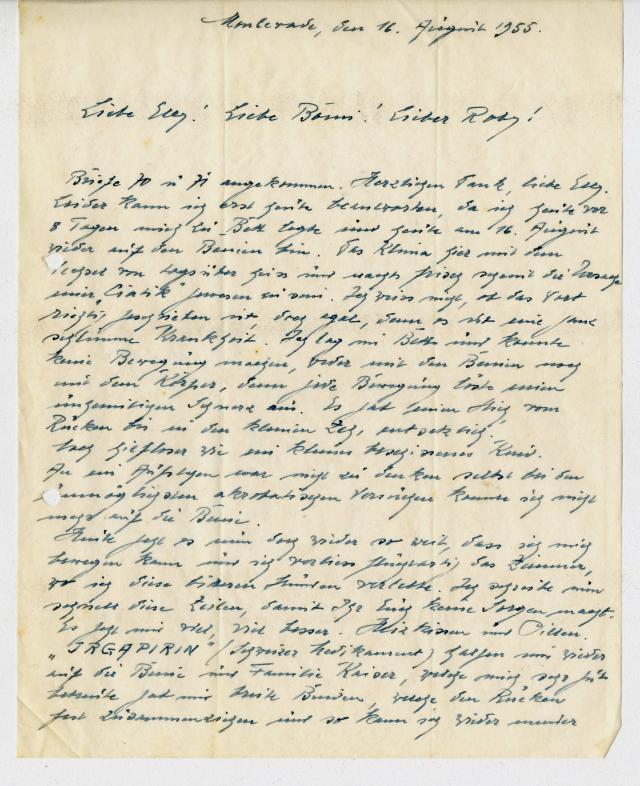 Monlevade, den 16. August 1955.
Liebe Elly! Liebe Bömi! Lieber Roby!
Briefe 70 u 71 angekommen. Herzlichen Dank, liebe Elly.
Leider kann ich erst heute beantworten, da ich heute vor
8 Tagen mich zu Bett legte und heute am 16. August
wieder auf den Beinen bin. Das Klima hier mit dem
Wechsel von tagsüber heiss und nachts frisch scheint die Ursache
einer "Ciatik" gewesen zu sein. Ich weiss nicht, ob das Wort
richtig geschrieben ist, doch egal, denn es ist eine ganz
schlimme Krankheit. Ich lag im Bett und konnte
keine Bewegung machen, weder mit den Beinen noch
mit dem Körper, denn jede Bewegung löste einen
unheimlichen Schmerz aus. Es gab einen Stich vom
Rücken bis in den kleinen Zeh, entsetzlich!
Lag hilflos wie ein kleines Kind.
An ein Aufstehen war nicht zu denken selbst bei den
unmöglichsten akrobatischen Versuchen konnte ich nicht
mehr auf die Beine.
Heute geht es nun doch wieder so weit, dass ich mich
bewegen kann und ich verliess das Zimmer,
wo ich diese bitteren Stunden verlebte. Ich schreibe nun
schnell diese Zeilen, damit Ihr Euch keine Sorgen macht.
Es geht mir viel, viel besser. Heizkissen und Pillen
"IRGAPIRIN" (Schweizer Medikament) halfen mir wieder
auf die Beine und Familie Kaiser, welche mich sehr gut
betreute gab mir breite Binden, welche den Rücken
fest zusammenziehen und so kann ich wieder munter